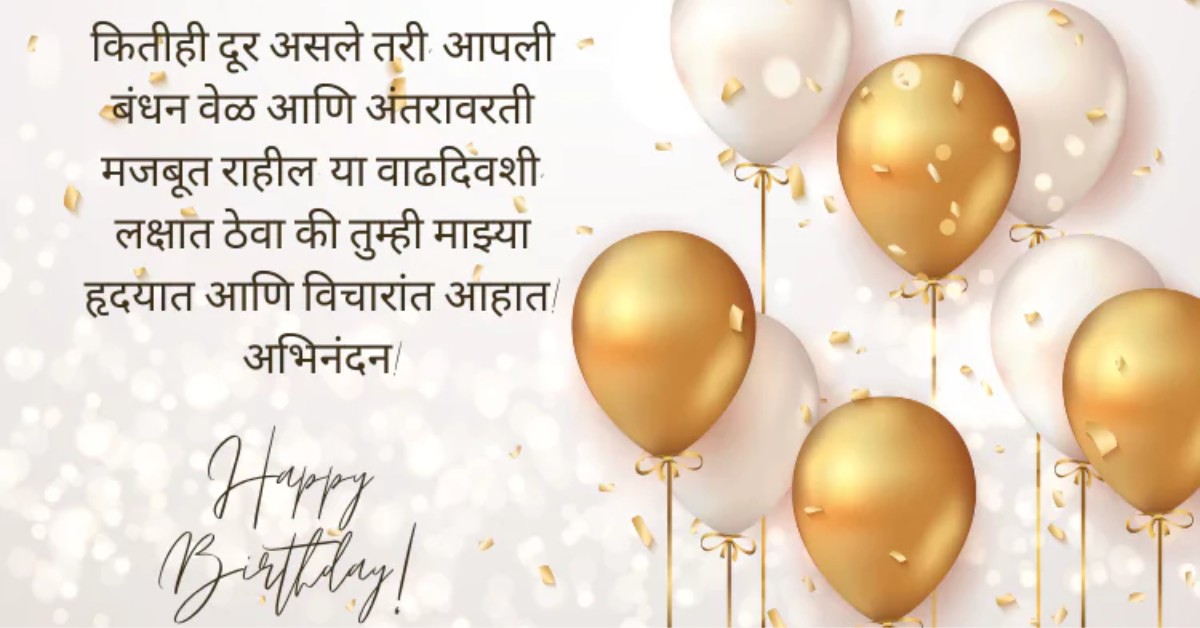 कितीही दूर असले तरी, आपली
बंधन वेळ आणि अंतरावरती
मजबूत राहील, या वाढदिवशी,
लक्षात ठेवा की तुम्ही माझ्या
हृदयात आणि विचारांत आहात!
अभिनंदन!
Happy
Birthday!